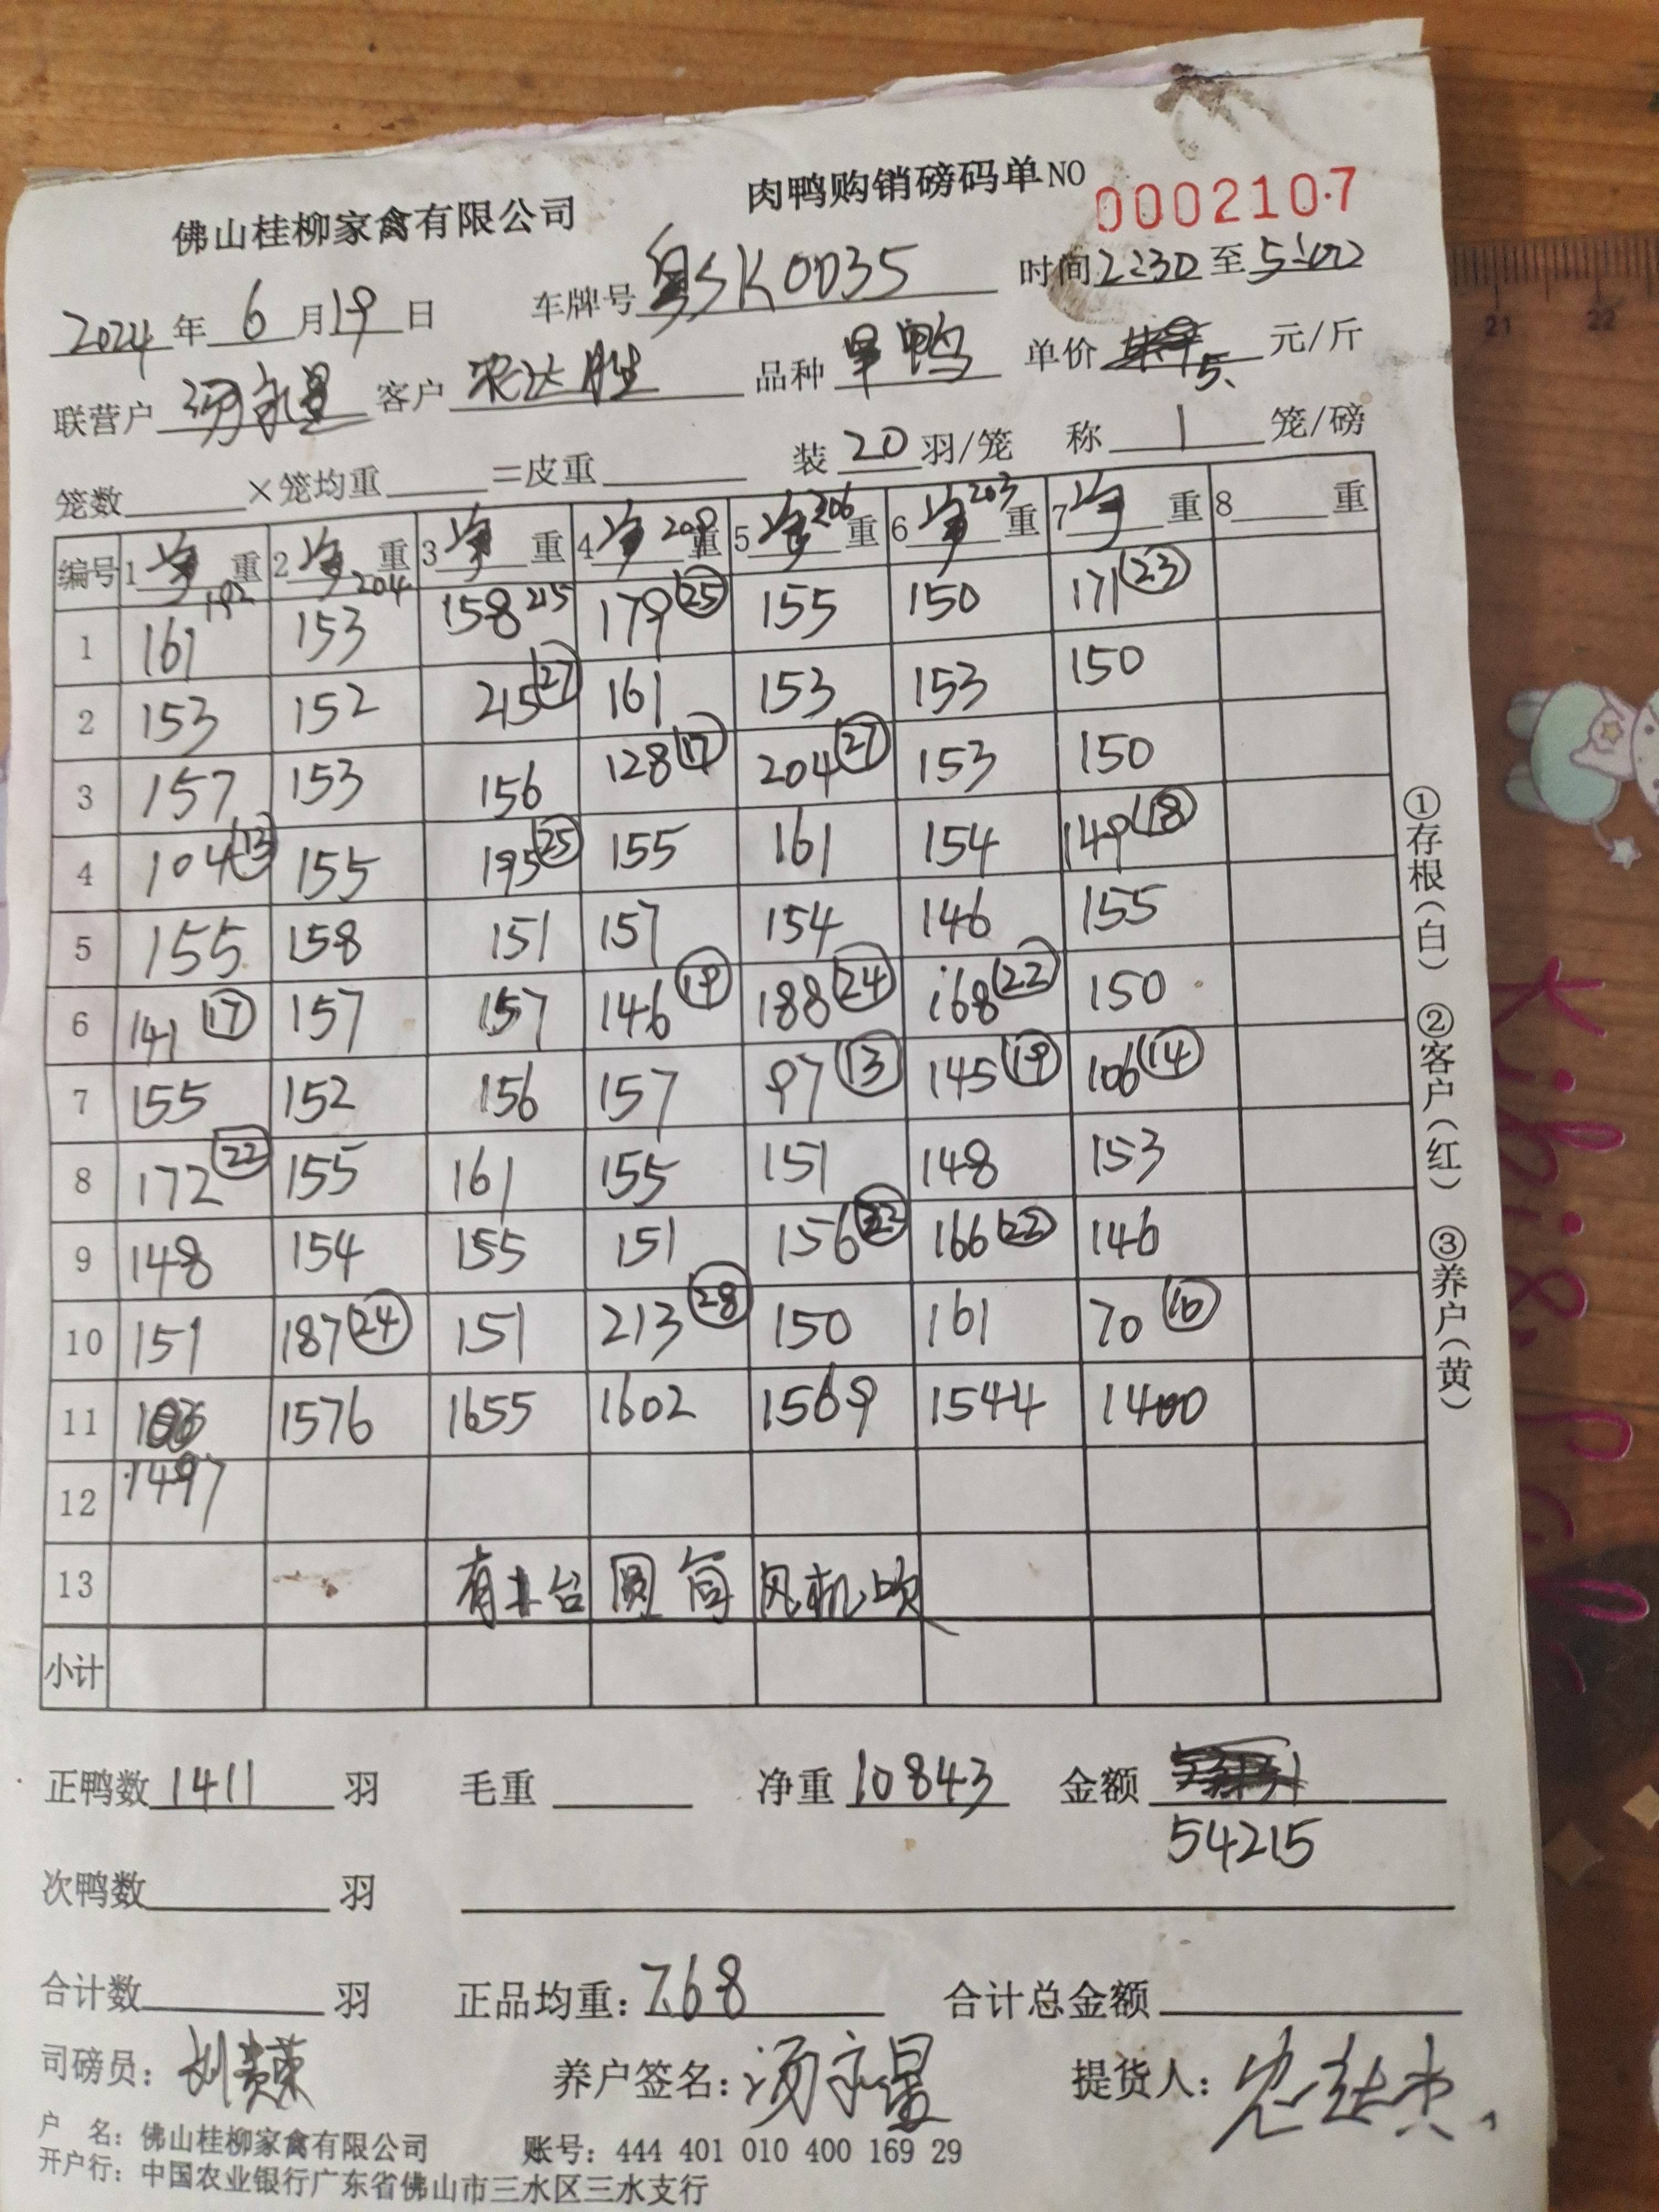 佛山桂柳家禽有限公司 肉鸭购销磅码单 NO 0002107
2024年6月19日 车牌号 粤SK0035 时间 2:30 至 5:00
联营户 汤永星 客户 农达胜 品种 旱鸭 单价 5. 元/斤
笼数 ×笼均重 =皮重 装 20 羽/笼 称 1 笼/磅
编号 1 净 重 192 2 净 重 204 3 净 重 215 4 净 208 重 5 净 206 重 6 净 203 重 7 净 重 8 重
1 161 153 158 179 (25) 155 150 171 (23)
2 153 152 215 (27) 161 153 153 150
3 157 153 156 128 (17) 204 (27) 153 150
4 104 (13) 155 195 (25) 155 161 154 149 (18)
5 155 158 151 157 154 146 155
6 141 (17) 157 157 146 (19) 188 (24) 168 (22) 150
7 155 152 156 157 97 (13) 145 (19) 106 (14)
8 172 (22) 155 161 155 151 148 153
9 148 154 155 151 156 166 (22) 146
10 151 187 (24) 151 213 (28) 150 161 70 (10)
11 1576 1655 1602 1569 1544 1400
12 1497
13 有 台 圆筒 风机吹
小计
正鸭数 1411 羽 毛重 净重 10843 金额
54215
次鸭数 羽
合计数 羽 正品均重: 7.68 合计总金额
司磅员: 养户签名: 汤永星 提货人:
户 名: 佛山桂柳家禽有限公司 账号: 444 401 010 400 169 29
开户行: 中国农业银行广东省佛山市三水区三水支行
①存根(白) ②客户(红) ③养户(黄)
21 22